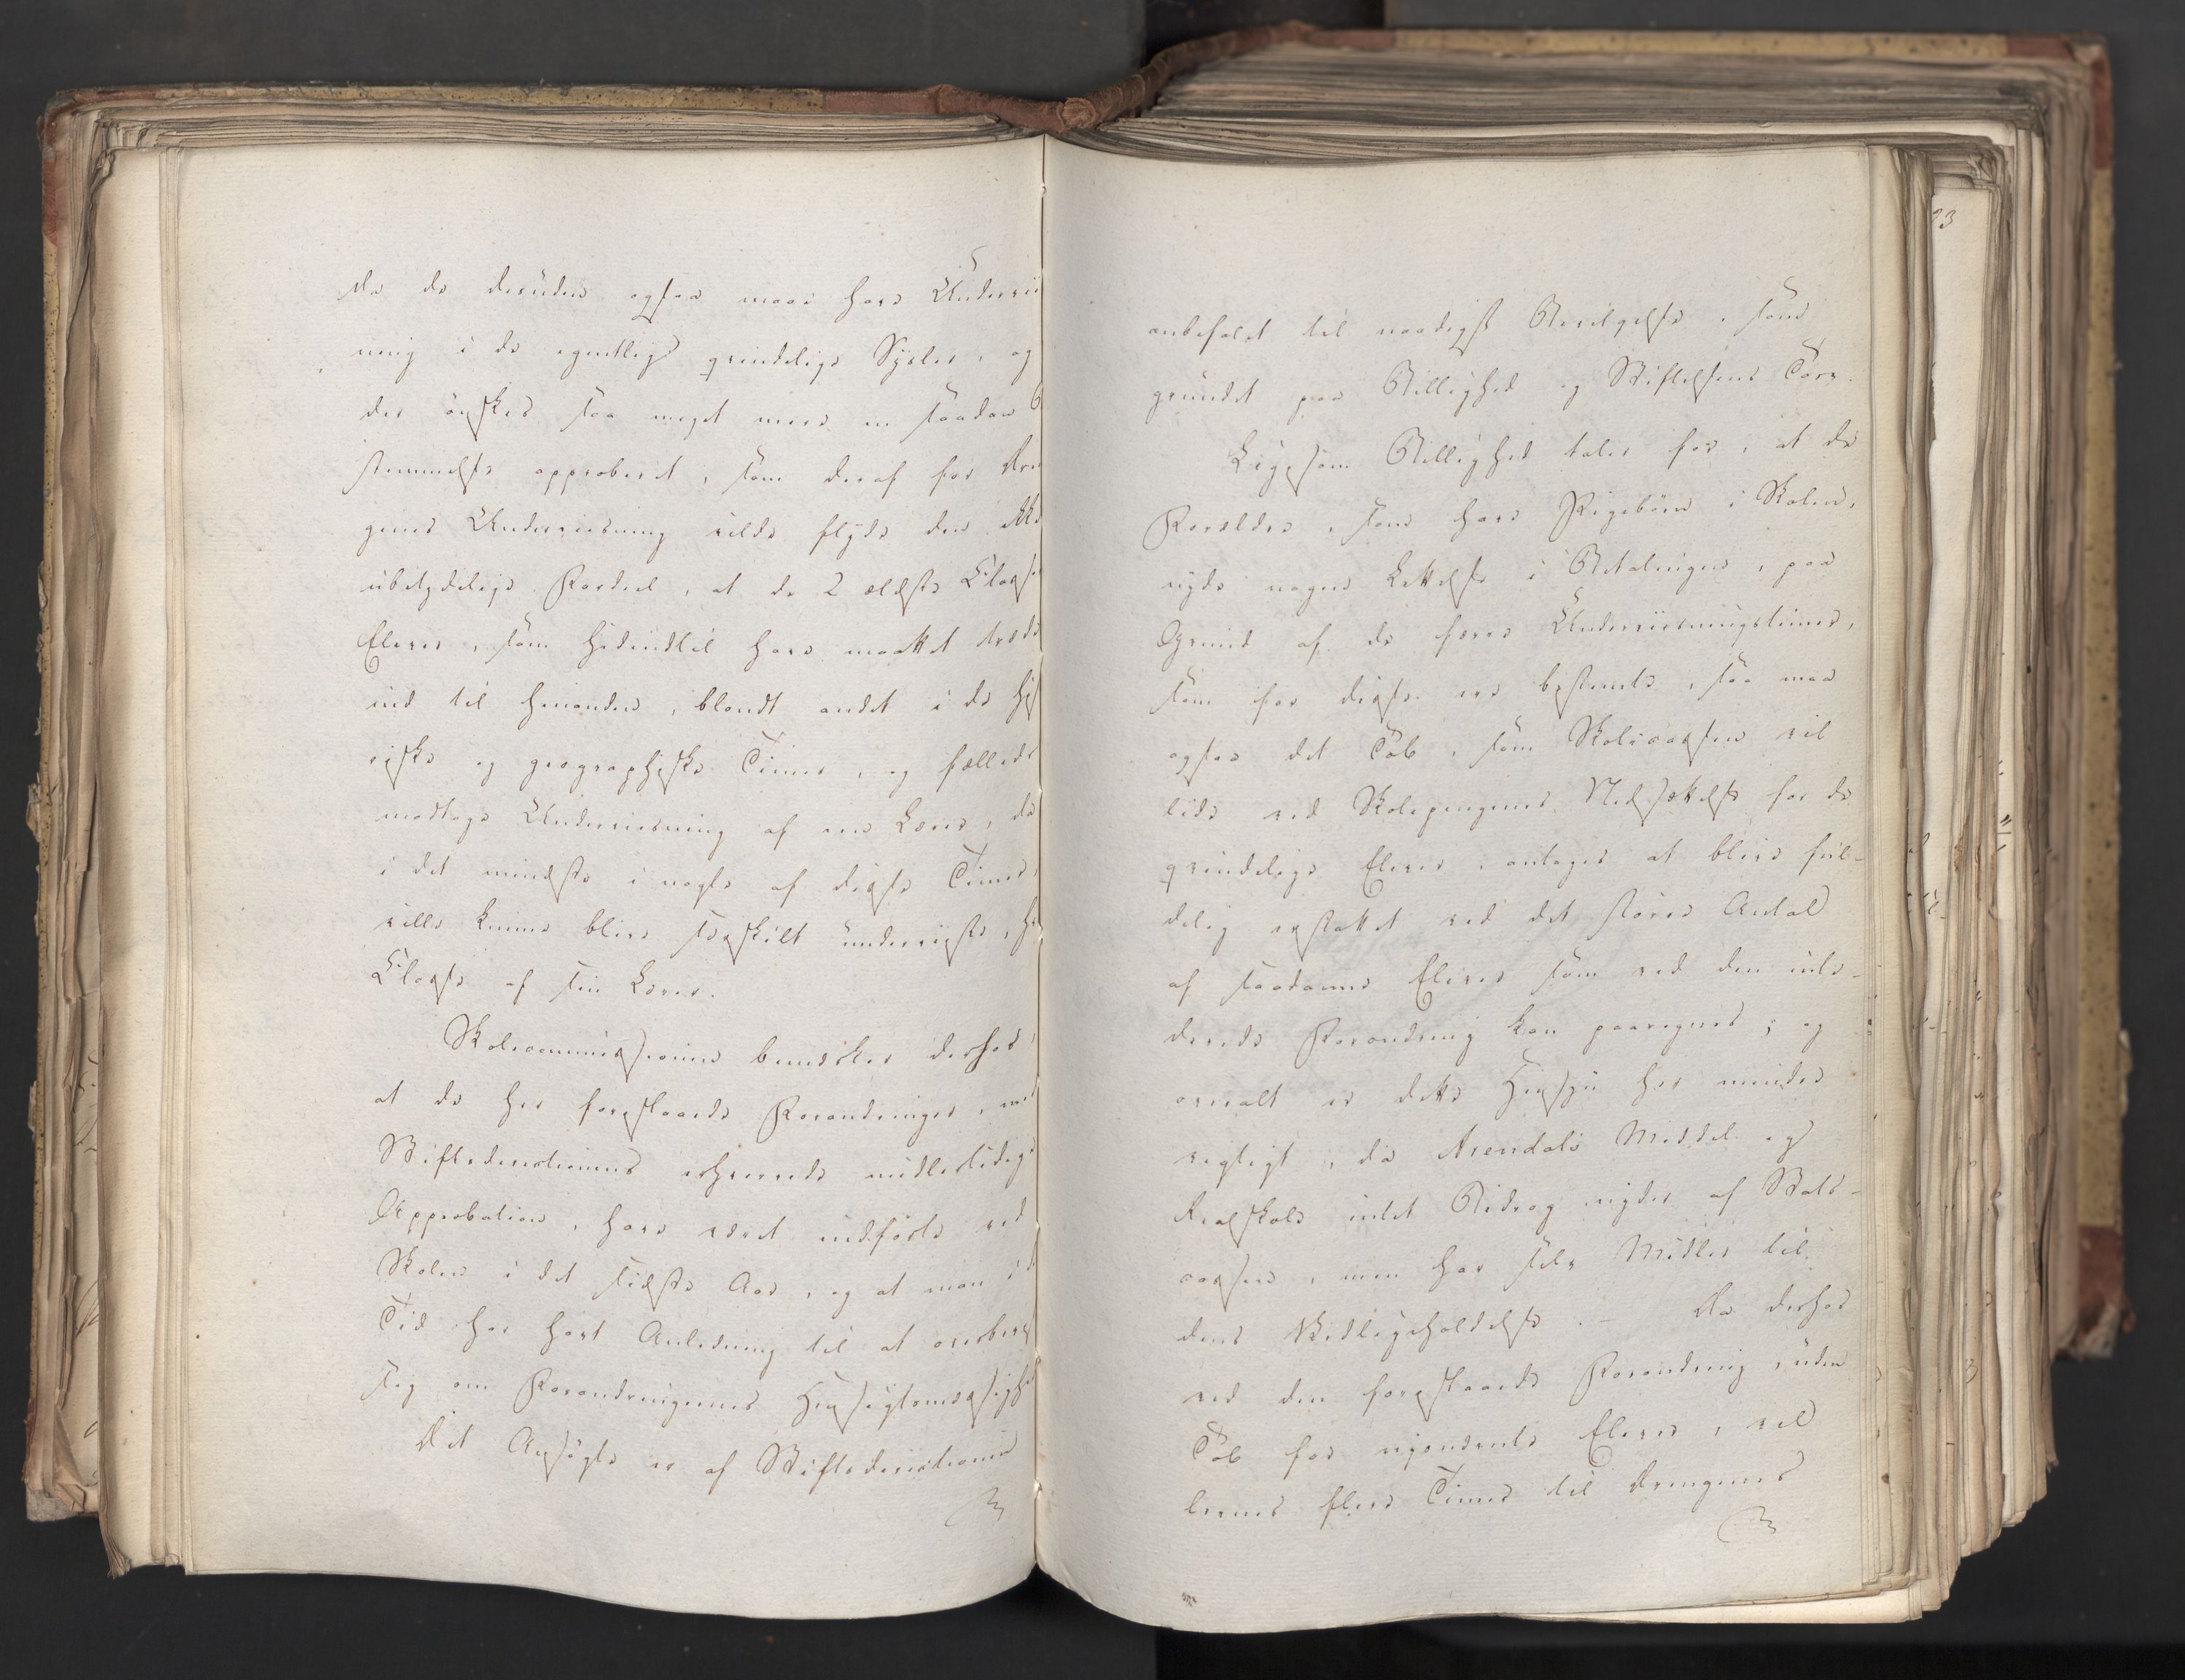 da de desuden ogsaa maae have Underviis
ning i de egentlige qvindelige Sysler, og
der ønskes saa meget mere en saadan
stemmelse approberet, som deraf for Dren
genes Underviisning vilde flyde den ikke
ubetydelige Fordeel, at de 2 ældste Classer
Elever, som hidindtil have maattet træde
ind til hinanden, blandt andet i de hist
riske og geographiske Timer, og fælleds
modtage Underviisning af een Lærer, da
i det mindste i nogle af disse Timer,
ville kunne blive særskilt underviiste, hv
Classe af sin Lærer.
Skolecommissionen bemærker derhos,
at de her foreslaaede Forandringer, med
Stiftsdirectionens erhvervede midlertidige
Approbation, have været indførte ved
Skolen i det sidste Aar, og at man i d
Tid har havt Anledning til at overbevise
sig om Forandringernes Hensigtsmæssighe
Det Ansøgte er af Stiftsdirectionen
anbefalet til naadigst Bevilgelse, som
grundet paa Billighed og Stiftelsens Tarv.
Ligesom Billighed taler for, at de
Forældre, som have Pigebørn i Skolen,
nyde nogen Lettelse i Betalingen, paa
Grund af de færre Underviisningstimer,
som for disse ere bestemte, saa maa
ogsaa det Tab, som Skolecassen vil
lide ved Skolepengenes Nedsættelse for de
qvindelige Elever, antages at blive fuld-
delig erstattet ved det større Antal
af saadanne Elever som ved den intro-
derede Forandring kan paaregnes; og
overalt er dette Hensyn her mindre
vigtigt, da Arendals Middel og
Realskole intet Bidrag nyder af Stats-
cassen, men har selv Midler til
dens Vedligeholdelse. – Da derhos
ved den foreslaaede Forandring, uden
Tab for nysnævnte Elever, vil
levnes flere Timer til Drengenes